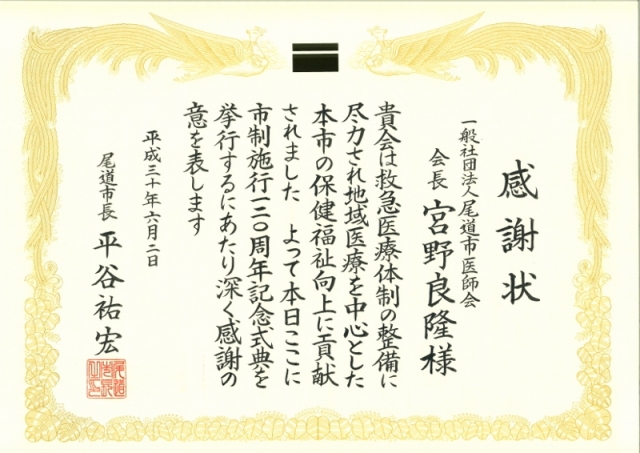 感謝状
一般社団法人尾道市医師会
会長 宮野良隆様
貴会は救急医療体制の整備に
尽力され地域医療を中心とした
本市の保健福祉向上に貢献
されました よって本日ここに
市制施行一二〇周年記念式典を
挙行するにあたり深く感謝の
意を表します
平成三十年六月二日
尾道市長 平谷祐宏